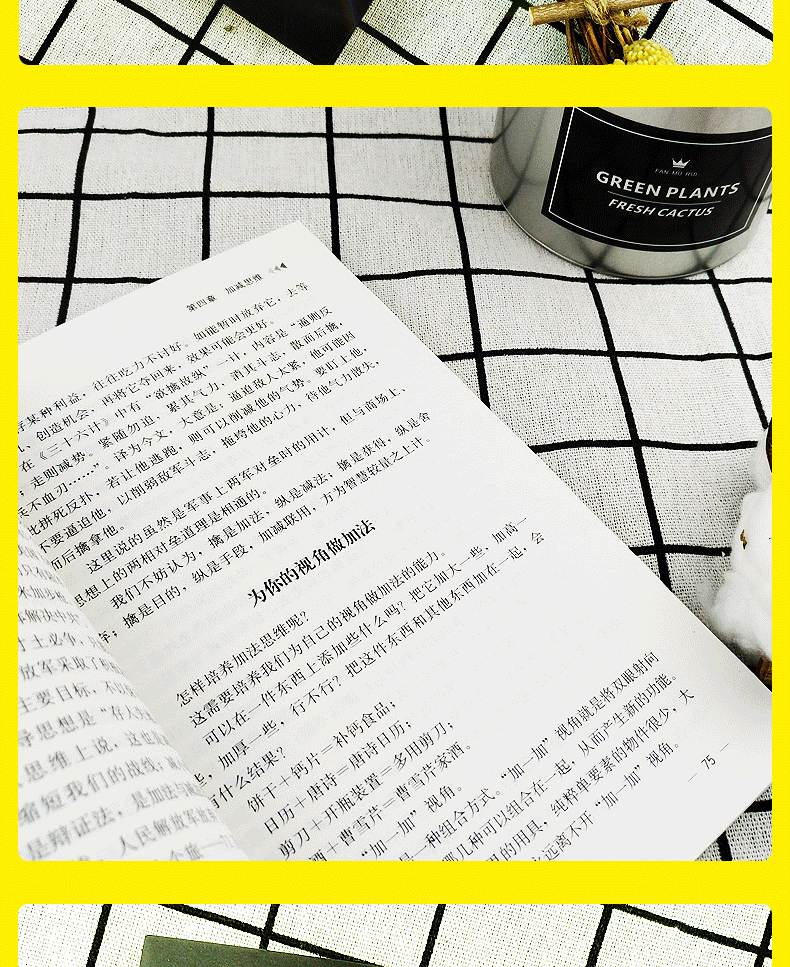 FAN MU RUI
GREEN PLANTS
FRESH CACTUS
第四章 加减思维
某种利益，往往吃力不讨好。如能暂时放弃它，去等
创造机会，再将它夺回来，效果可能会更好。
在《三十六计》中有“欲擒故纵”一计，内容是“逼则反
；走则减势。紧随勿迫，累其气力，消其斗志，散而后擒，
兵不血刃……”。译为今文，大意是，逼迫敌人太紧，他可能因
比拼死反扑，若让他逃跑，则可以削减他的气势。要盯上他，
不要逼迫他，以削弱敌军斗志，拖垮他的心力，待他气力散失，
而后擒拿他。
这里说的虽然是军事上两军对垒时的用计，但与商场上、
思想上的两相对垒道理是相通的。
我们不妨认为，擒是加法，纵是减法；擒是获得，纵是舍
弃；擒是目的，纵是手段，加减联用，方为智慧较量之上计。
为你的视角做加法
怎样培养加法思维呢？
这需要培养我们为自己的视角做加法的能力。
可以在一件东西上添加些什么吗？把它加大一些，加高一
些，加厚一些，行不行？把这件东西和其他东西加在一起，会
有什么结果？
饼干＋钙片＝补钙食品；
日历＋唐诗＝唐诗日历；
剪刀＋开瓶装置＝多用剪刀；
酒＋曹雪芹＝曹雪芹家酒。
“加一加”视角。
是一种组合方式。“加一加”视角就是将双眼射向
哪几种可以组合在一起，从而产生新的功能。
的用具，纯粹单要素的物件很少，大
远离不开“加一加”视角。
— 75 —
解决中
寸土必争，
放军采取了
主要目标，不以
导思想是“存人失
思维上说，这也
缩短我们的战线；
是辩证法，是加法与减
，人民解放军放
个旅